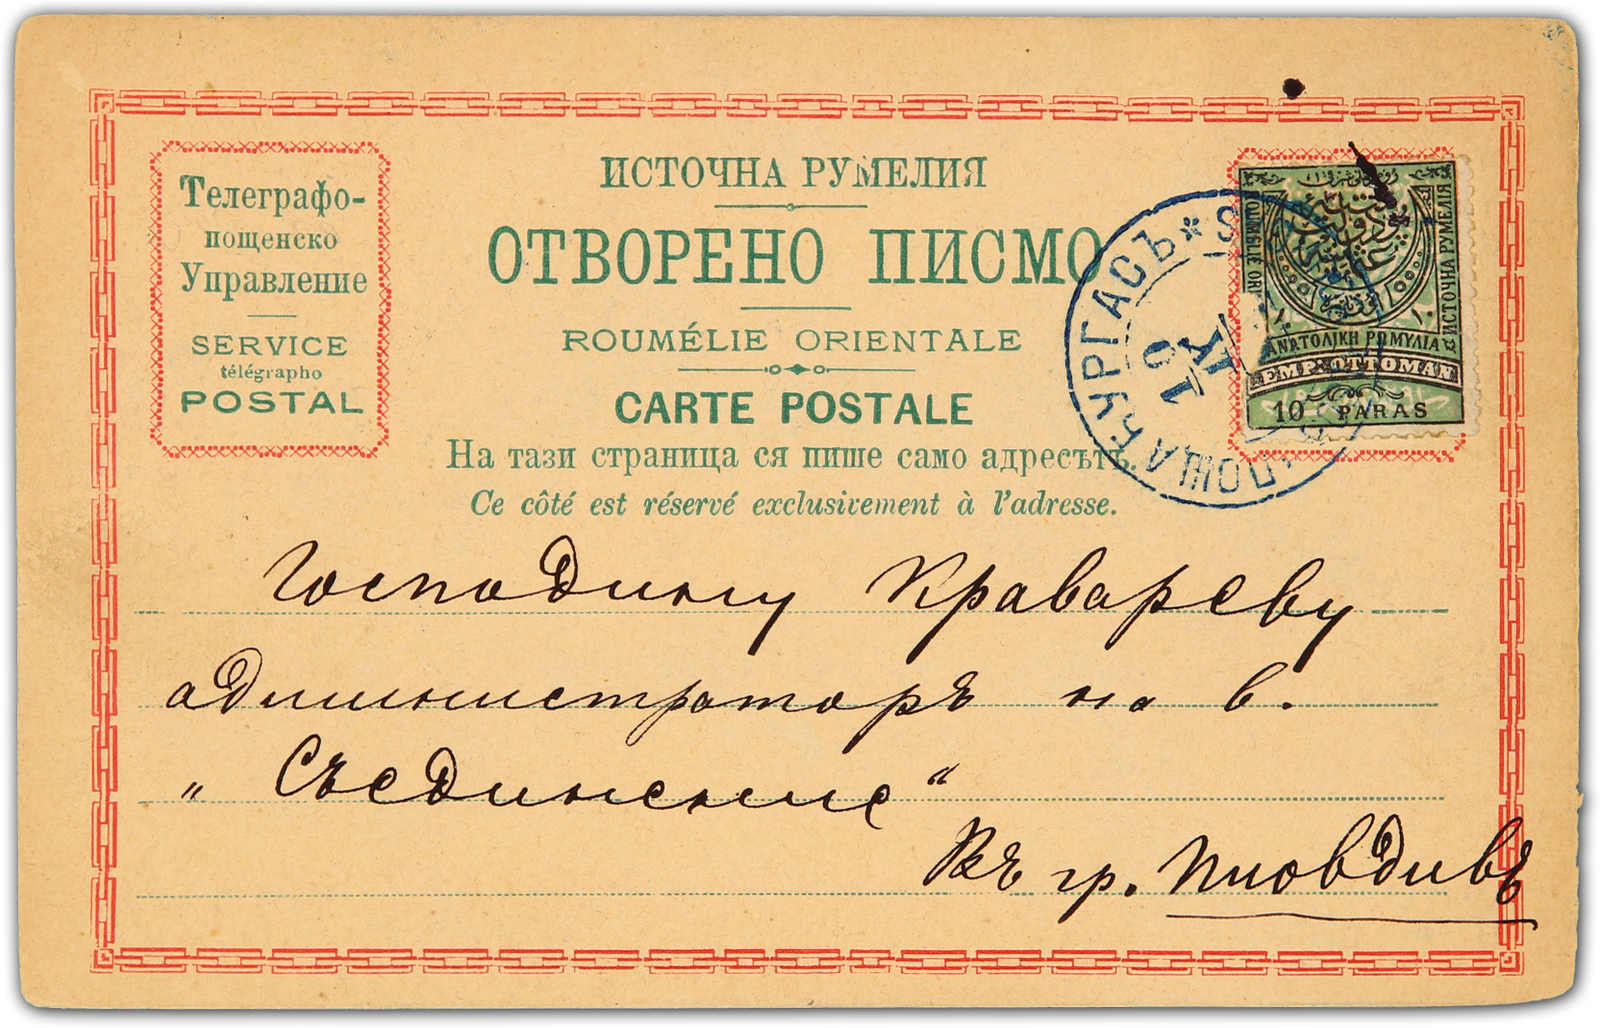 Телеграфо-
пощенско
Управление
SERVICE
télégrapho
POSTAL
ИСТОЧНА РУМЕЛИЯ
ОТВОРЕНО ПИСМО
ROUMÉLIE ORIENTALE
CARTE POSTALE
На тази страница ся пише само адресътъ.
Ce côté est réservé exclusivement à l'adresse.
ПОЩА БУРГАСЪ
10
ИСТОЧНА РУМЕЛИЯ
ΑΝΑΤΟΛΙΚΗ ΡΩΜΥΛΙΑ
EMP. OTTOMAN
10 PARAS
Господину Кравареву
администраторъ на в.
„Съединение“
Въ гр. Пловдивъ